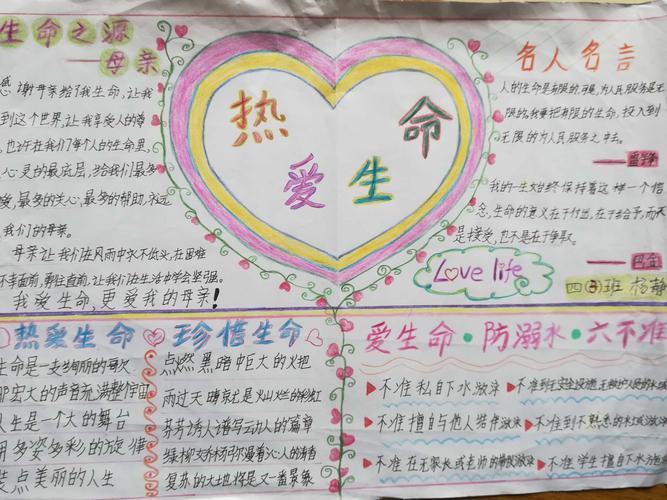 生命之源
——母亲
感谢母亲给了我生命,让我
到这个世界,让我享受人的尊
也许在我们每个人的生命里,
心灵的最底层,给我们最多
爱,最多的关心,最多的帮助,永远
我们的母亲。
母亲让我们在风雨中永不低头,在困难
不幸面前,勇往直前,让我们在生活中学会坚强。
我爱生命,更爱我的母亲!
热爱
生命
名人名言
人的生命是有限的,可是,为人民服务是无
限的,我要把有限的生命,投入到
无限的为人民服务之中去。
——雷锋
我的一生始终保持着这样一个信
念,生命的意义在于付出,在于给予,而不
是接受,也不是在于争取。
——巴金
Love life
四(3)班 杨静
热爱生命 珍惜生命
生命是一支绚丽的歌
那宏大的声音充满整宇宙
人生是一个大的舞台
用多姿多彩的旋律
装点美丽的人生
点燃黑暗中巨大的火把
雨过天晴
的彩虹
芬芳诱人谱写动人的篇章
绿柳
乔杨
沁人心的清香
复苏的大地将是又一番景象
爱生命·防溺水·六不准
不准私自下水游泳
不准擅自与他人结伴游泳
不准在无家长或老师的带领游泳
不准到无安全设施、无救护人员的水域
不准到不熟悉的水域游泳
不准学生擅自下水